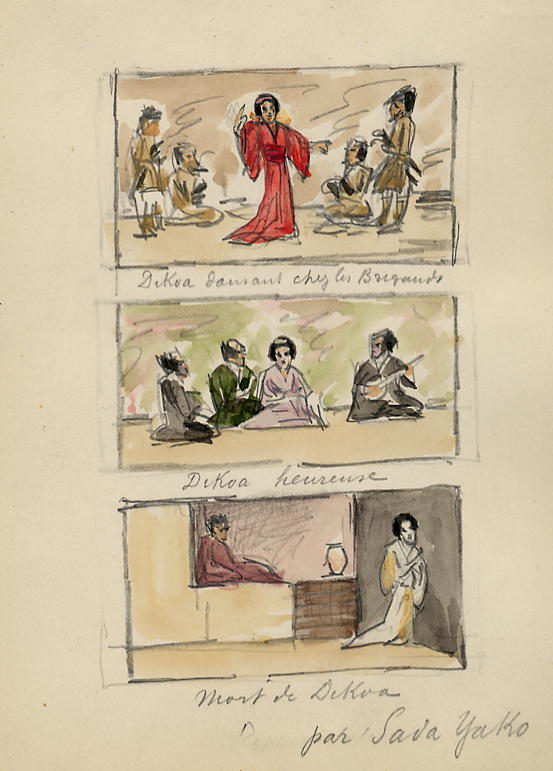 DiKoa dansant chez les Brigands
DiKoa heureuse
Mort de DiKoa
par Sada Yako